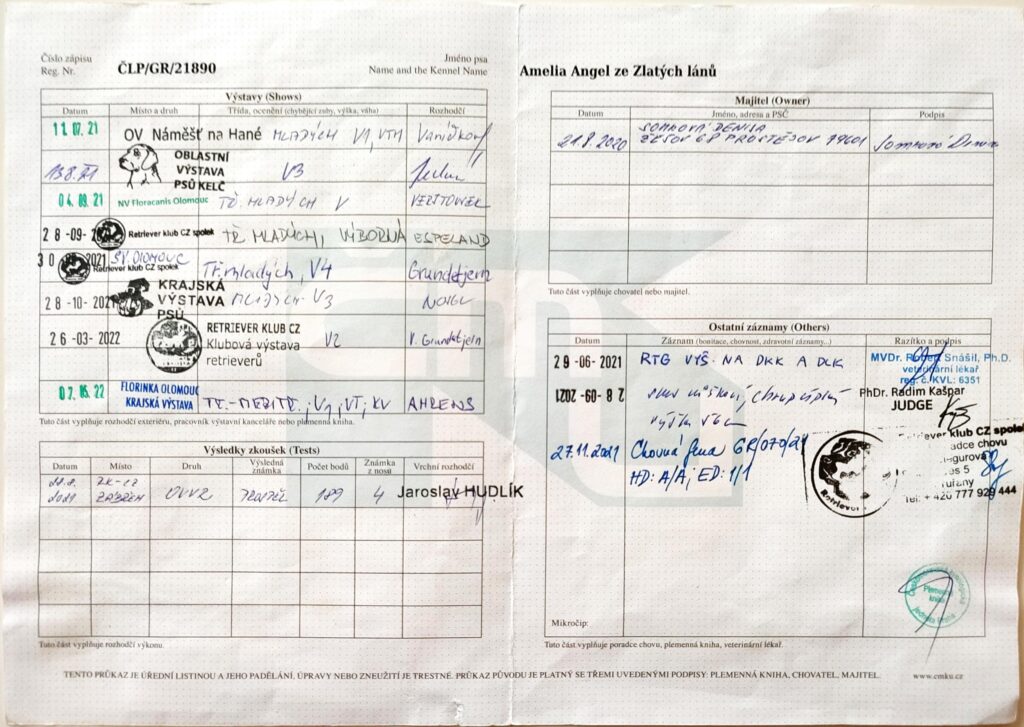 Číslo zápisu
Reg. Nr.
ČLP/GR/21890
Jméno psa
Name and the Kennel Name
Amelia Angel ze Zlatých lánů
Výstavy (Shows)
Datum Místo a druh Třída, ocenění (chybějící zuby, výška, váha) Rozhodčí
11.07.21 OV Náměšť na Hané MLADÝCH V1, VTM
13.8.21 OBLASTNÍ VÝSTAVA PSŮ KELČ V3
04.09.21 NV Floracanis Olomouc TŘ. MLADÝCH V
28-09- Retriever klub CZ spolek TŘ. MLADÝCH, VÝBORNÁ ESPELAND
30 2021 SV. OLOMOUC Retriever klub CZ spolek Tř. mladých, V4 Grundetjern
28-10-2021 KRAJSKÁ VÝSTAVA PSŮ MLADÝCH V3
26-03-2022 RETRIEVER KLUB CZ Klubová výstava retrieverů V2 V. Grundetjern
07.05.22 FLORINKA OLOMOUC KRAJSKÁ VÝSTAVA TŘ.-MEZITŘ., V1, VT, KV AHRENS
Tuto část vyplňuje rozhodčí exteriéru, pracovník výstavní kanceláře nebo plemenná kniha.
Výsledky zkoušek (Tests)
Datum Místo Druh Výsledná známka Počet bodů Známka z nosu Vrchní rozhodčí
2021 OVVR 189 4 Jaroslav HUDLÍK
Tuto část vyplňuje rozhodčí výkonu.
Majitel (Owner)
Datum Jméno, adresa a PSČ Podpis
21.8.2020 SOMROVÁ DENISA
ČEŠOV 68 PROSTĚJOV 79601
Tuto část vyplňuje chovatel nebo majitel.
Ostatní záznamy (Others)
Datum Záznam (bonitace, chovnost, zdravotní záznamy...) Razítko a podpis
29-06-2021 RTG VYŠ. NA DKK A DLK MVDr. Robert Snášil, Ph.D.
veterinární lékař
reg. č. KVL: 6351
28-09-2021 PhDr. Radim Kašpar
JUDGE
27.11.2021 Chovná fena GR/070/21
HD: A/A, ED: 1/1
Retriever klub CZ spolek
poradce chovu
Tel: + 420 777 929 444
Retriever
Plemenná kniha
Mikročip:
Tuto část vyplňuje poradce chovu, plemenná kniha, veterinární lékař.
TENTO PRŮKAZ JE ÚŘEDNÍ LISTINOU A JEHO PADĚLÁNÍ, ÚPRAVY NEBO ZNEUŽITÍ JE TRESTNÉ. PRŮKAZ PŮVODU JE PLATNÝ SE TŘEMI UVEDENÝMI PODPISY: PLEMENNÁ KNIHA, CHOVATEL, MAJITEL.
www.cmku.cz